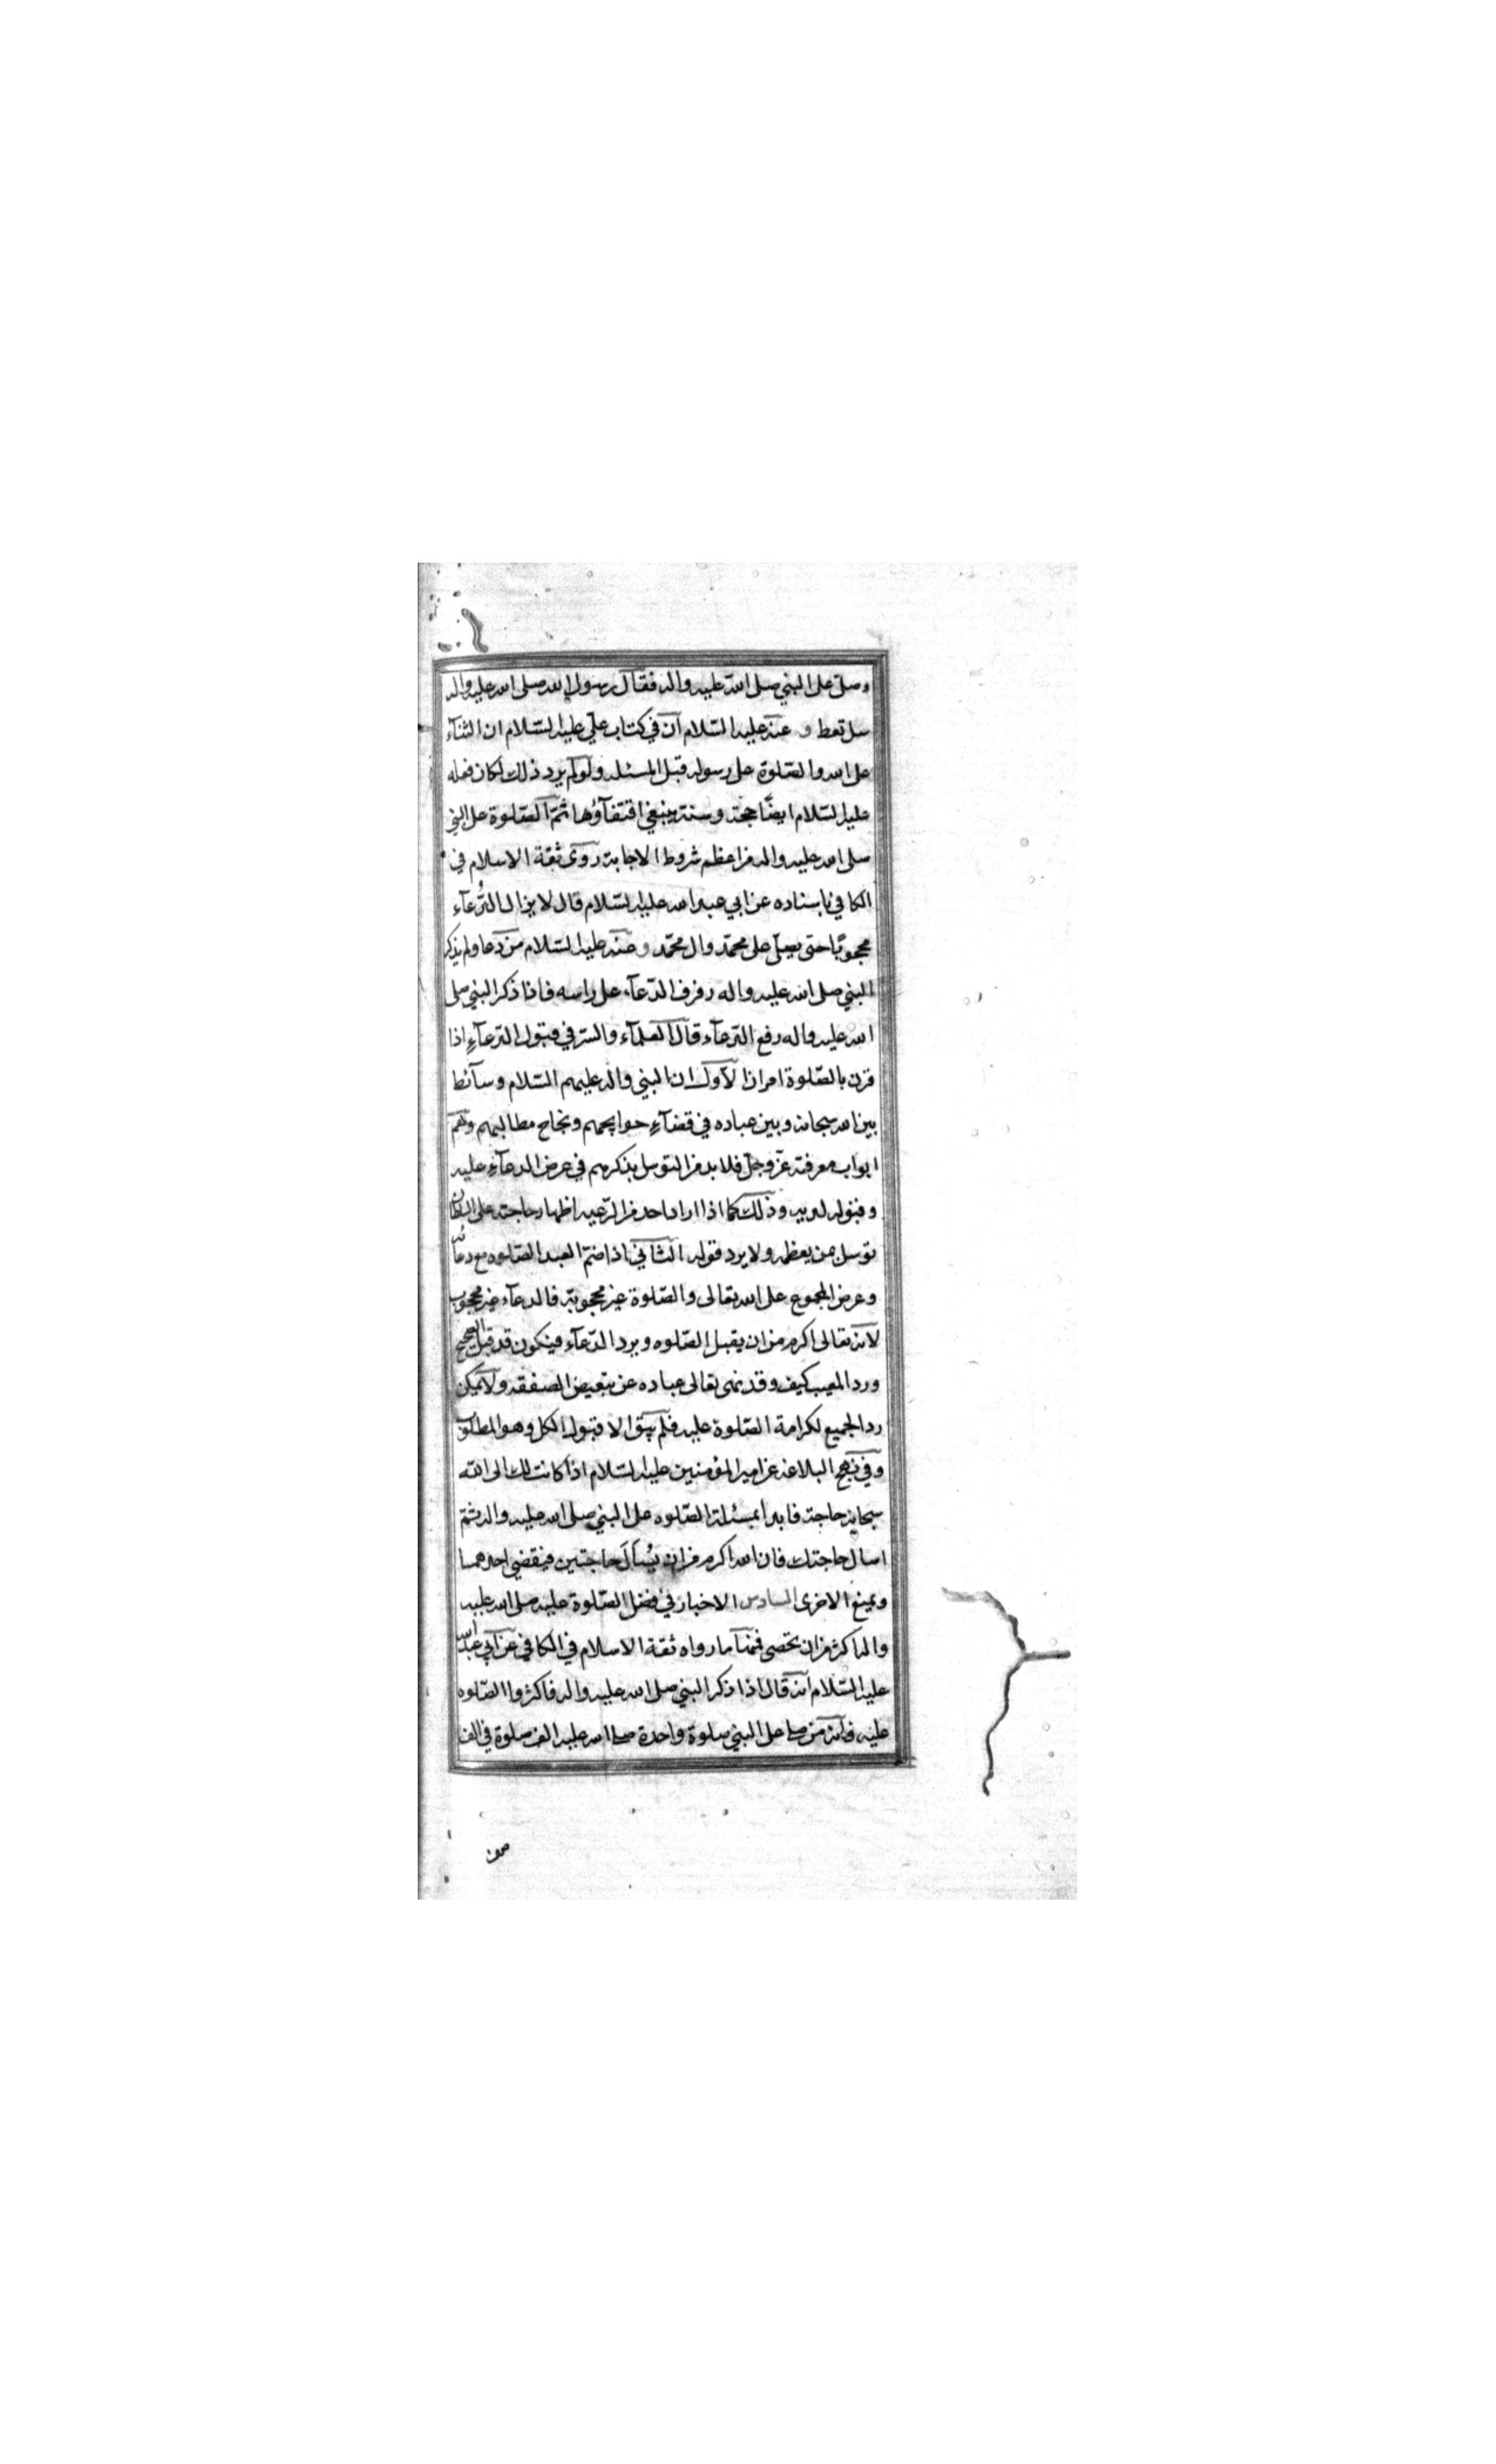 وصلى على النبي صلى الله عليه واله فقال رسول الله صلى الله عليه واله
سل تعط وعنه عليه السلام ان في كتاب علي عليه السلام ان الثناء
على الله والصلوة على رسوله قبل المسئله ولو لم يرد ذلك لكان فعله
عليه السلام ايضًا حجة وسنة ينبغي اقتفاؤها ثم الصلوة على النبي
صلى الله عليه واله من اعظم شروط الاجابة روى ثقة الاسلام في
الكافي باسناده عن ابي عبد الله عليه السلام قال لا يزال الدُّعآء
محجوبًا حتى يصلى على محمد وال محمد وعنه عليه السلام من دعا ولم يذكر
النبي صلى الله عليه واله رفرف الدعآء على راسه فاذا ذكر النبي صلى
الله عليه واله رفع الدعآء قال العلمآء والسر في قبول الدعآء اذا
قرن بالصلوة امران الاول ان النبي واله عليهم السلام وسآئط
بين الله سبحانه وبين عباده في قضآء حوايجهم ونجاح مطالبهم وهم
ابواب معرفته عز وجل فلا بد من التوسل بذكرهم في عرض الدعآء عليه
وقبوله لديه وذلك كما اذا اراد احد من الرعيه اظهار حاجته على السلطان
توسل بمن يعظمه ولا يرد قوله الثاني اذا ضم العبد الصلوه مع دعائه
وعرض المجموع على الله تعالى والصلوة غير محجوبة فالدعآء غير محجوب
لانه تعالى اكرم من ان يقبل الصلوه ويرد الدعآء فيكون قد قبل الصحيح
ورد المعيب كيف وقد نهى تعالى عباده عن تبعيض الصفقه ولا يمكن
رد الجميع لكرامة الصلوة عليه فلم يبق الا قبول الكل وهو المطلوب
وفي نهج البلاغه عن امير المؤمنين عليه السلام اذا كانت لك الى الله
سبحانه حاجة فابدا بمسئلة الصلوه على النبي صلى الله عليه واله ثم
اسال حاجتك فان الله اكرم من ان يُسأَلَ حاجتين فيقضي احدهما
ويمنع الاخرى السادس الاخبار في فضل الصلوة عليه صلى الله عليه
واله اكثر من ان تحصى فمنها ما رواه ثقة الاسلام في الكافي عن ابي عبد الله
عليه السلام انه قال اذا ذكر النبي صلى الله عليه واله فاكثروا الصلوه
عليه فانه من صلى على النبي صلوة واحدة صلى الله عليه الف صلوة في الف
صف